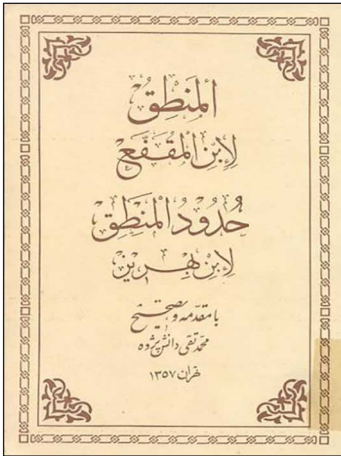 المَنطِقُ
لِابْنِ المُقَفَّعِ
حُدُودُ المَنطِقِ
لِابْنِ بِهرِیز
با مقدمه و تصحیح
محمد تقی دانش پژوه
تهران ۱۳۵۷